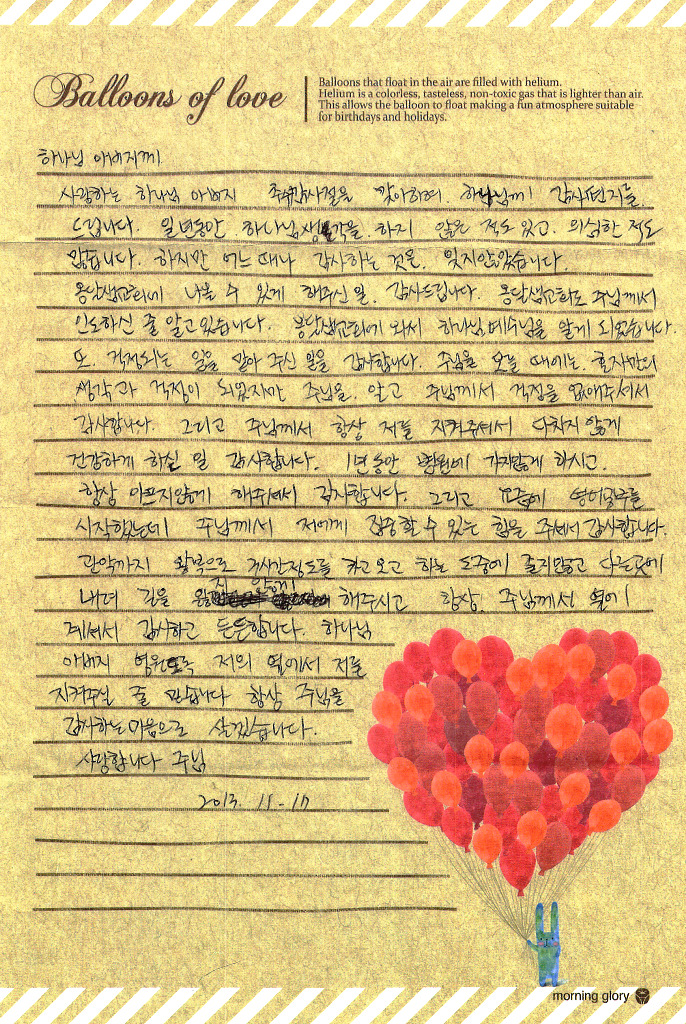 Balloons of love
Balloons that float in the air are filled with helium.
Helium is a colorless, tasteless, non-toxic gas that is lighter than air.
This allows the balloon to float making a fun atmosphere suitable
for birthdays and holidays.
하나님 아버지께
사랑하는 하나님 아버지 추수감사절을 맞이하여 하나님께 감사편지를
드립니다. 일년동안 하나님 생각을 하지 않은 적도 있고, 의심한 적도
많습니다. 하지만 어느 때나 감사하는 것을 잊지않았습니다.
옹달샘교회에 나올 수 있게 해주신 일 감사드립니다. 옹달샘교회도 주님께서
인도하신 줄 알고 있습니다. 옹달샘교회에 와서 하나님, 예수님을 알게 되었습니다.
또, 걱정되는 일을 맡아 주신 일을 감사합니다. 주님을 모를 때에는 혼자만의
생각과 걱정이 되었지만 주님을 알고 주님께서 걱정을 없애주셔서
감사합니다. 그리고 주님께서 항상 저를 지켜주셔서 다치지 않게
건강하게 하실 일 감사합니다. 1년동안 병원에 가지않게 하시고,
항상 아프지않게 해주셔서 감사합니다. 그리고 요즘에 영어공부를
시작했는데 주님께서 저에게 집중할 수 있는 힘을 주셔서 감사합니다.
관악까지 왕복으로 2시간정도를 타고 오고 하는 도중에 졸지않고 다른곳에
내려 길을 잃지 않게 해주시고 항상 주님께서 옆에
계셔서 감사하고 든든합니다. 하나님
아버지 영원토록 저의 옆에서 저를
지켜주실 줄 믿습니다 항상 주님을
감사하는 마음으로 살겠습니다.
사랑합니다 주님
2013. 11-17
morning glory